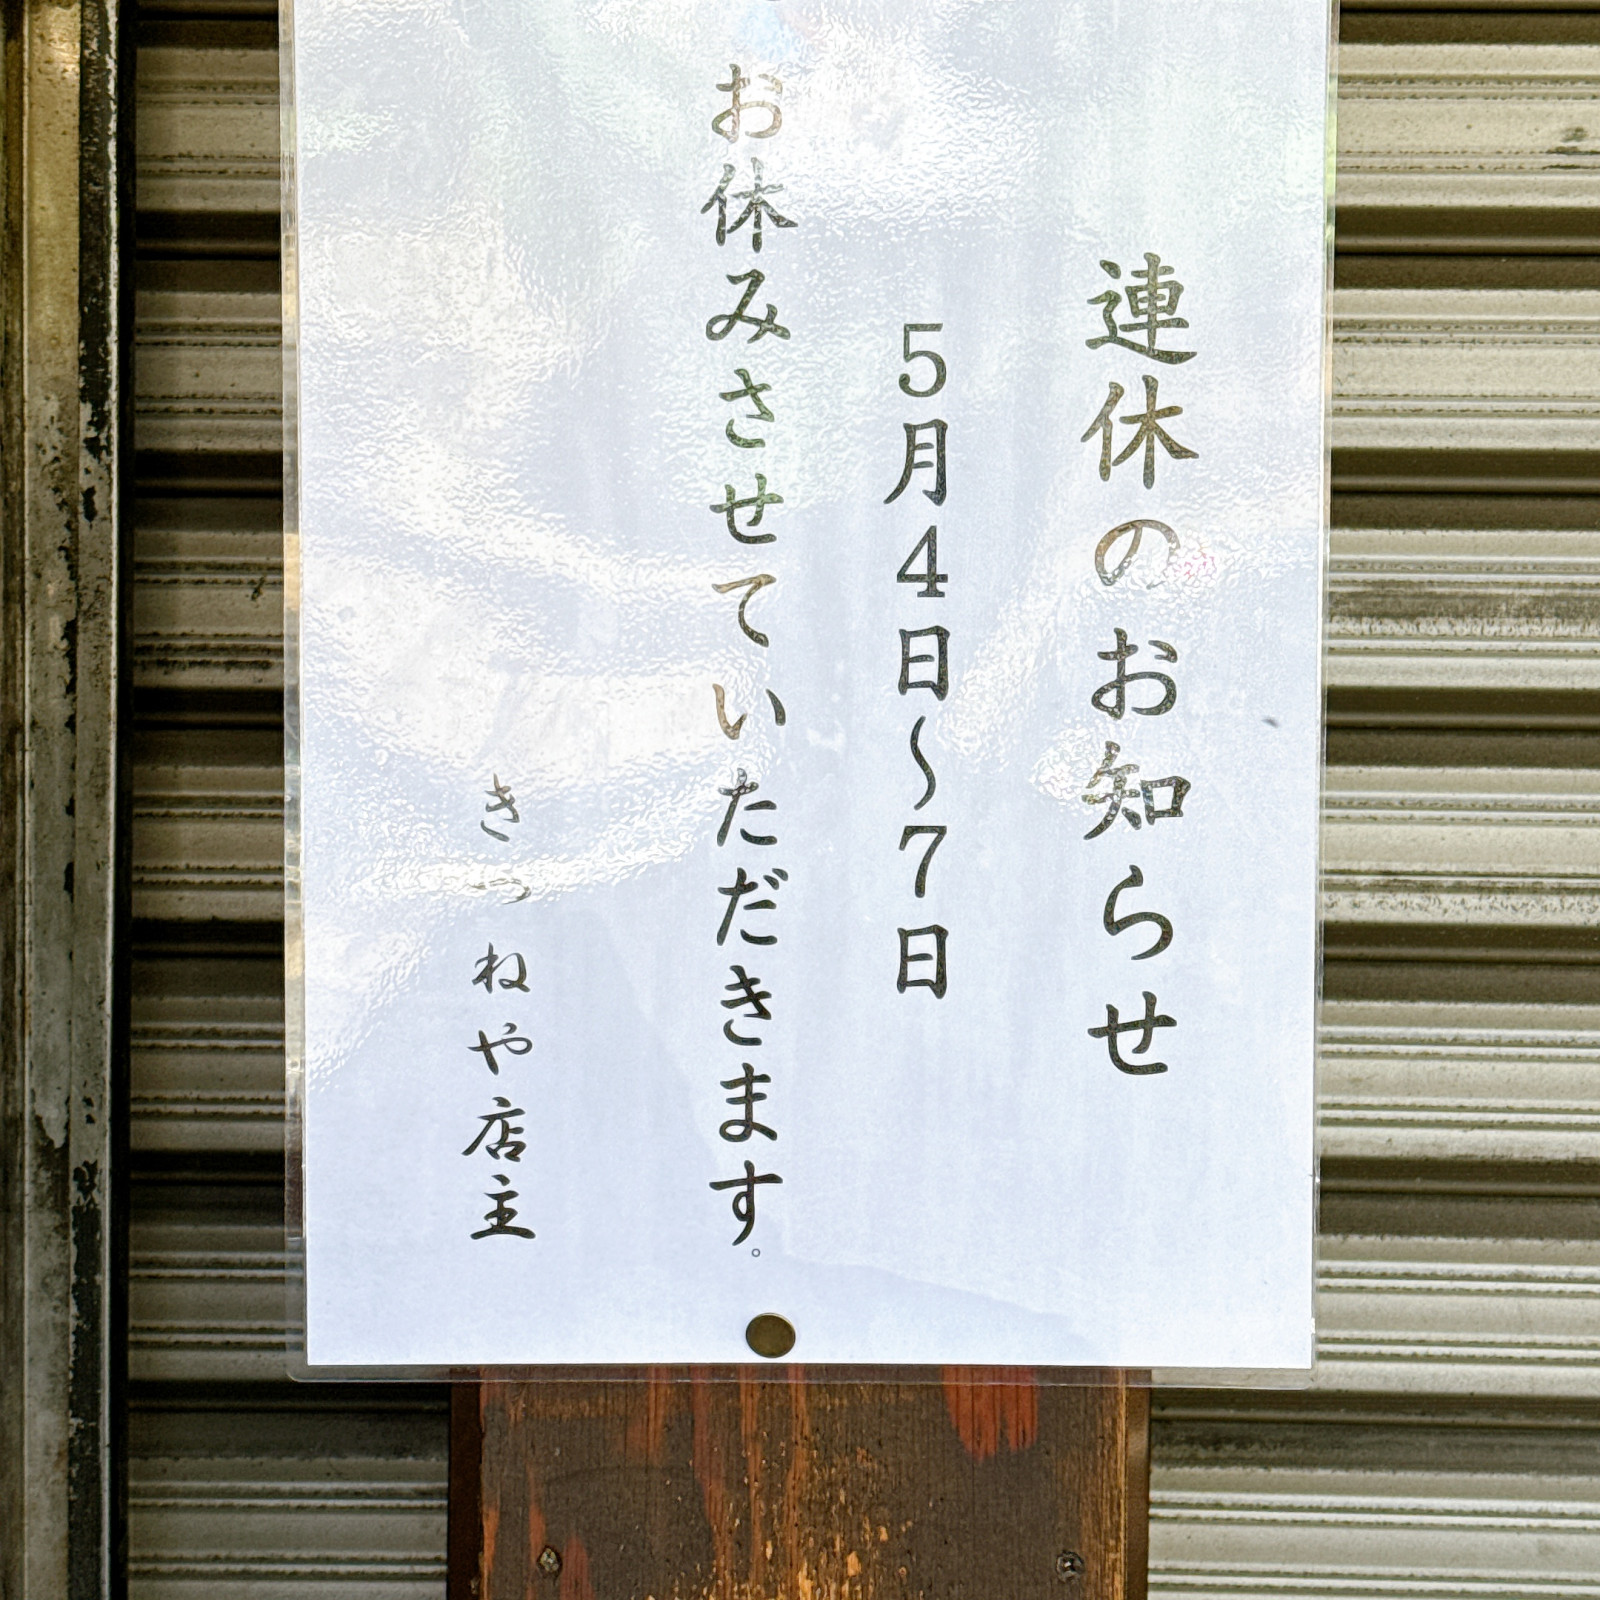 連休のお知らせ
5月4日〜7日
お休みさせていただきます。
きつねや店主